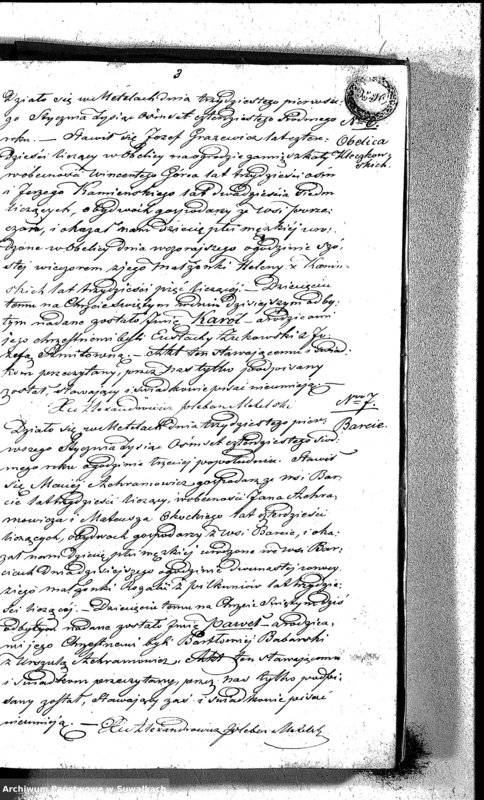 3
Działo się w Metelach dnia trzydziestego pierwsze-
go Stycznia tysiąc ośmset czterdziestego siódmego
roku. — Stawił się Jozef Grazewicz lat czter-
dzieści liczący w Obelicy na ogrodzie zamieszkały
w obecności Wincentego lat trzydzieści ośm
i Jerzego Kamienskiego lat dwadzieścia siedm
liczących, obydwoch gospodarzy ze wsi
i okazał nam dziecię płci męzkiej uro-
dzone w Obelicy dnia wczorajszego o godzinie szó-
stej wieczorem z jego małżonki Heleny z Kamin-
skich lat trzydzieści pięć liczącej — Dziecięciu
temu na Chrzcie Świętym w dniu dzisiejszym odby-
tym nadane zostało Imię Karol — a rodzicami
jego chrzestnemi byli Eustachy Żukowski z Jo-
zefą — Akt ten stawającemu i świad-
kom przeczytany, przez Nas tylko podpisany
został, stawający i świadkowie pisać nieumieją —
X Alexandrowicz Pleban Metelski
Nro 6.
Obelica
Nro 7.
Barcie.
Działo się w Metelach dnia trzydziestego pier-
wszego Stycznia tysiąc ośmset czterdziestego siód-
mego roku o godzinie trzeciej popołudniu. Stawił
się Maciej Achramowicz gospodarz ze wsi Bar-
cie lat trzydzieści liczący, w obecności Jana Achra-
mowicza i Mateusza lat czterdzieści
liczących, obydwoch gospodarzy z wsi Barcie, i oka-
zał nam dziecię płci męzkiej urodzone we wsi Bar-
ciach dnia dzisiejszego o godzinie dwunastej
z jego małżonki Rozalii z lat trzydzie-
ści liczącej — Dziecięciu temu na Chrzcie Świętym dziś
odbytym nadane zostało Imię Paweł — a rodzica-
mi jego Chrzestnemi byli Bartłomiej Babarski
z Urszulą Achramowicz — Akt ten stawającemu
i świadkom przeczytany, przez nas tylko podpi-
sany został, stawający zaś i świadkowie pisać
nieumieją. — X Alexandrowicz Pleban Metelski
Archiwum Państwowe w Suwałkach